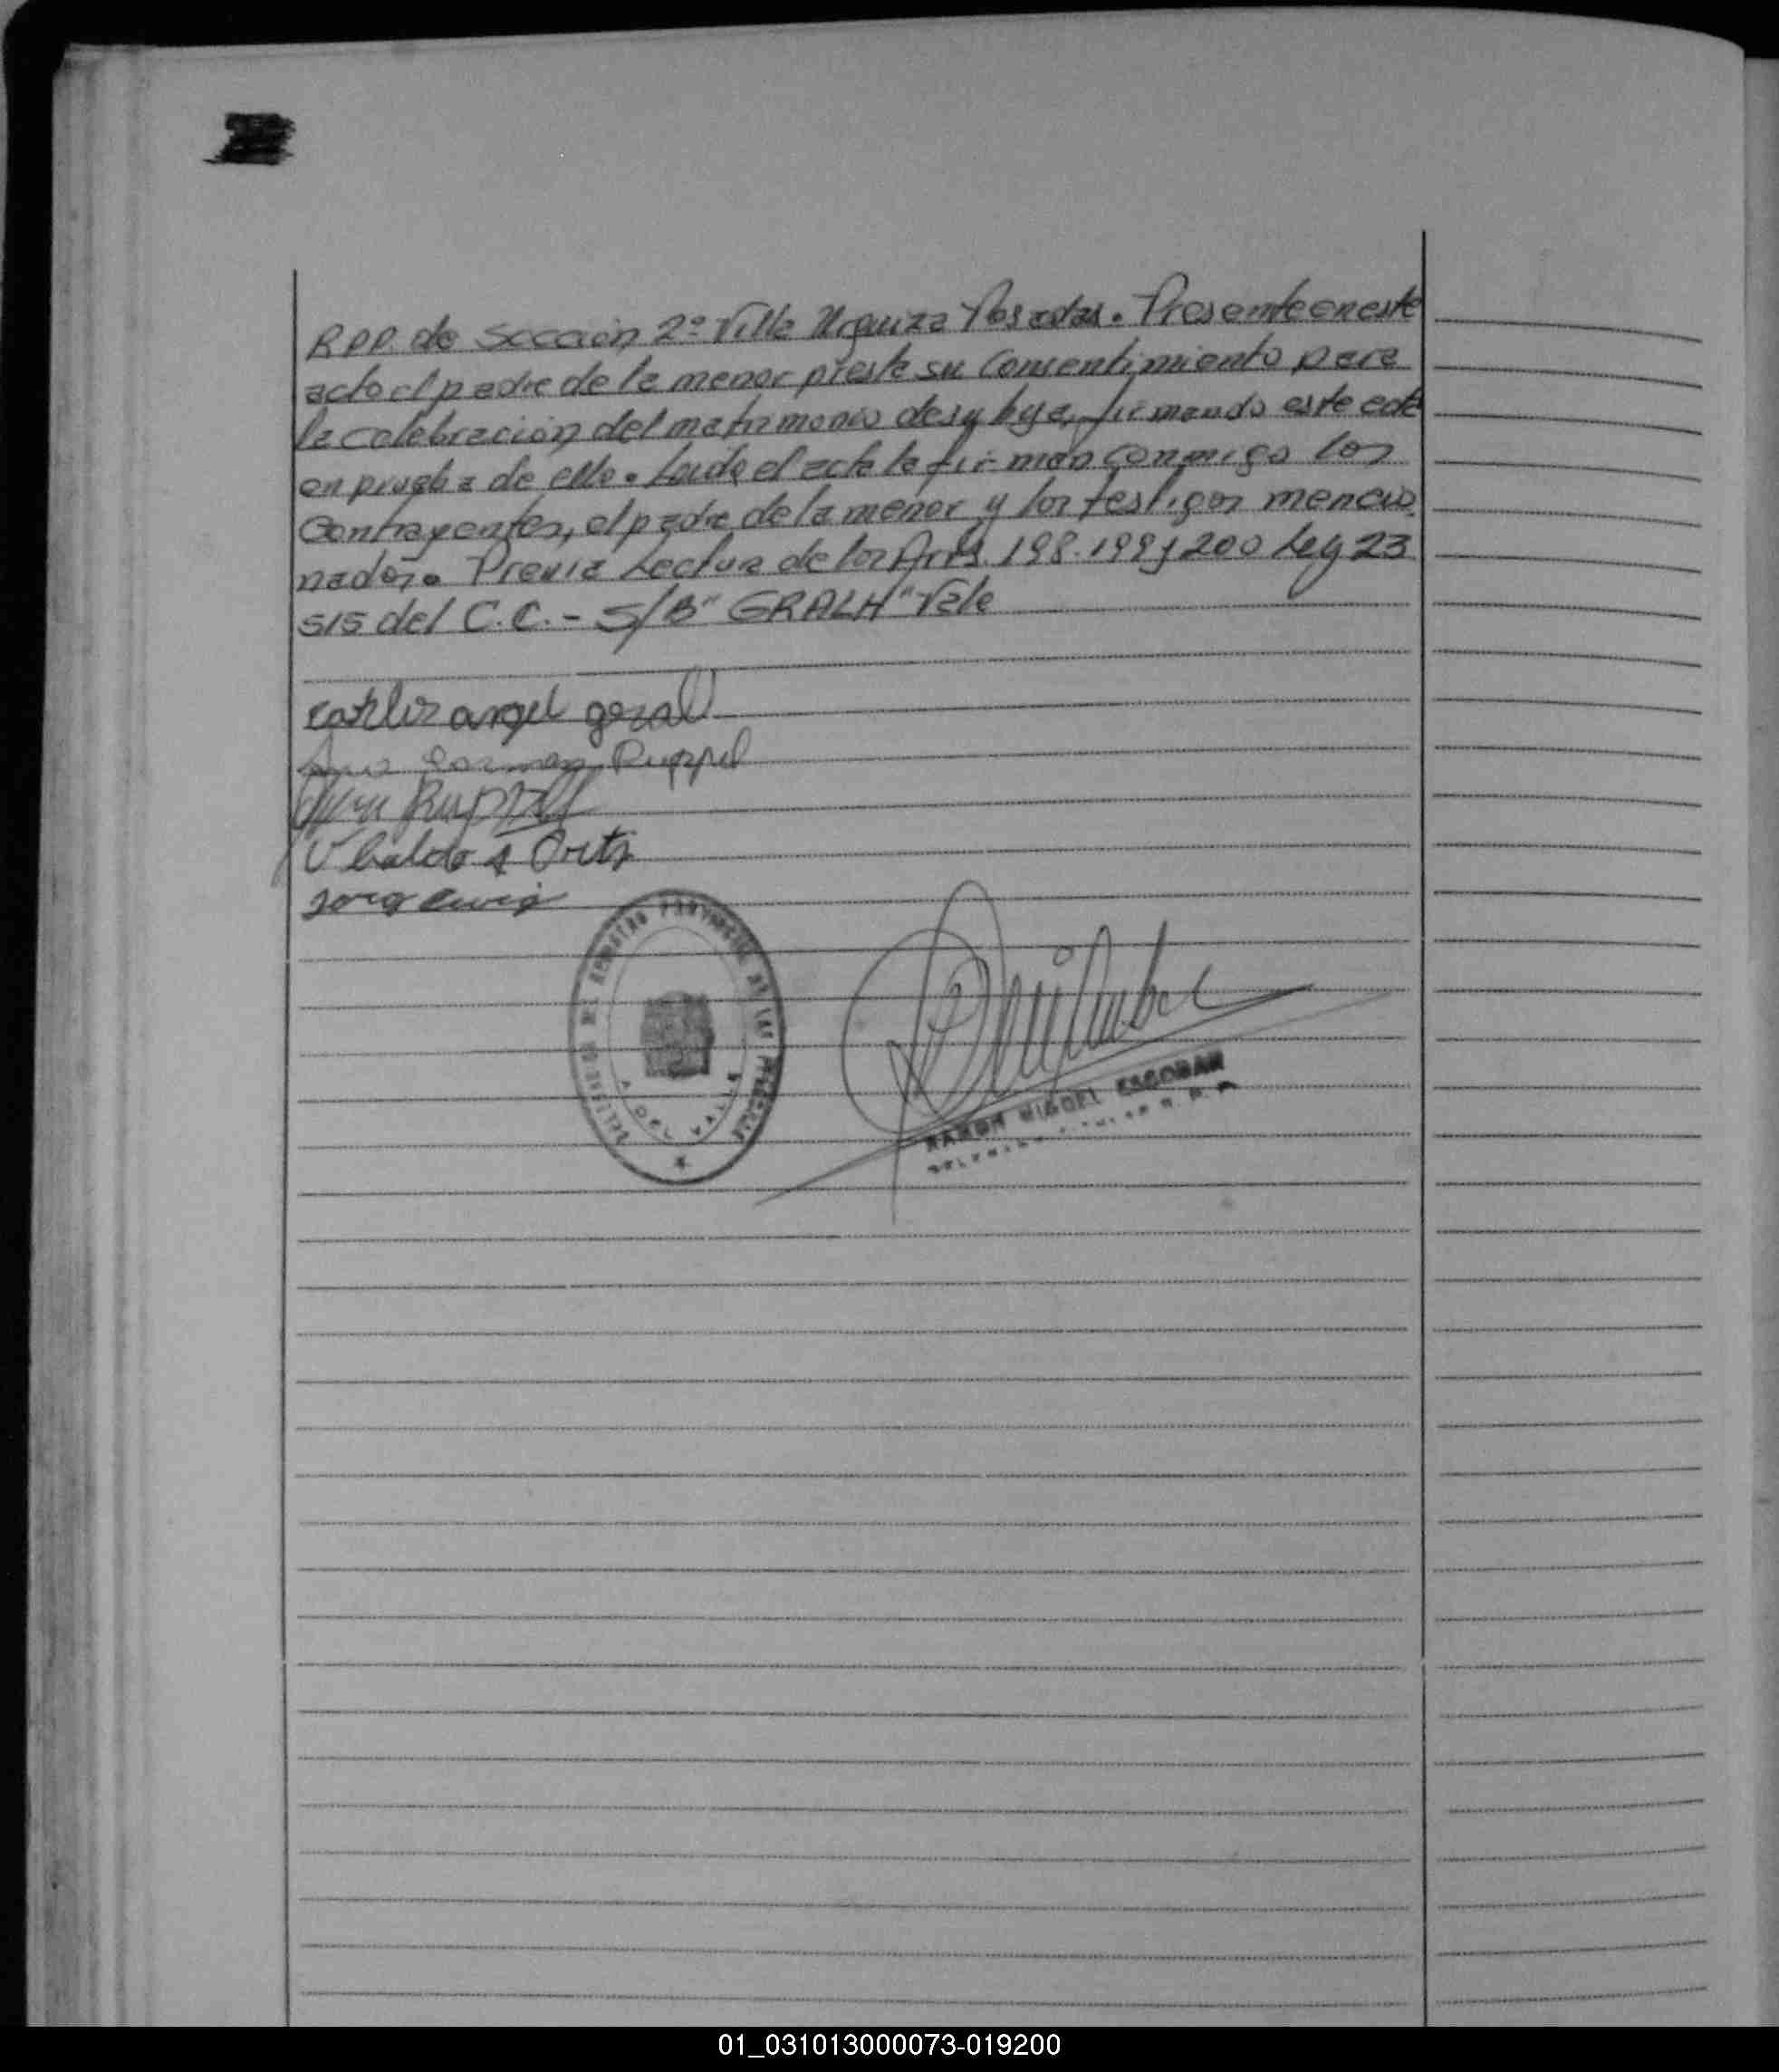 R.P.P. de Sección 2º Villa Urquiza Posadas. Presente en este
acto el padre de la menor presta su Consentimiento para
la celebración del matrimonio de su hija, firmando este acta
en prueba de ello. Leida el acta la firman conmigo los
Contrayentes, el padre de la menor y los testigos mencio
nados. Previa Lectura de los Arts. 198. 199 y 200 Ley 23
515 del C.C. - S/B "GRALH" Vale
carlos angel geral
Ruppel
Ruppel
Ubaldo A Ortiz
REGISTRO PROVINCIAL DE LAS PERSONAS
RAMON MIGUEL ESCOBAR
01_031013000073-019200